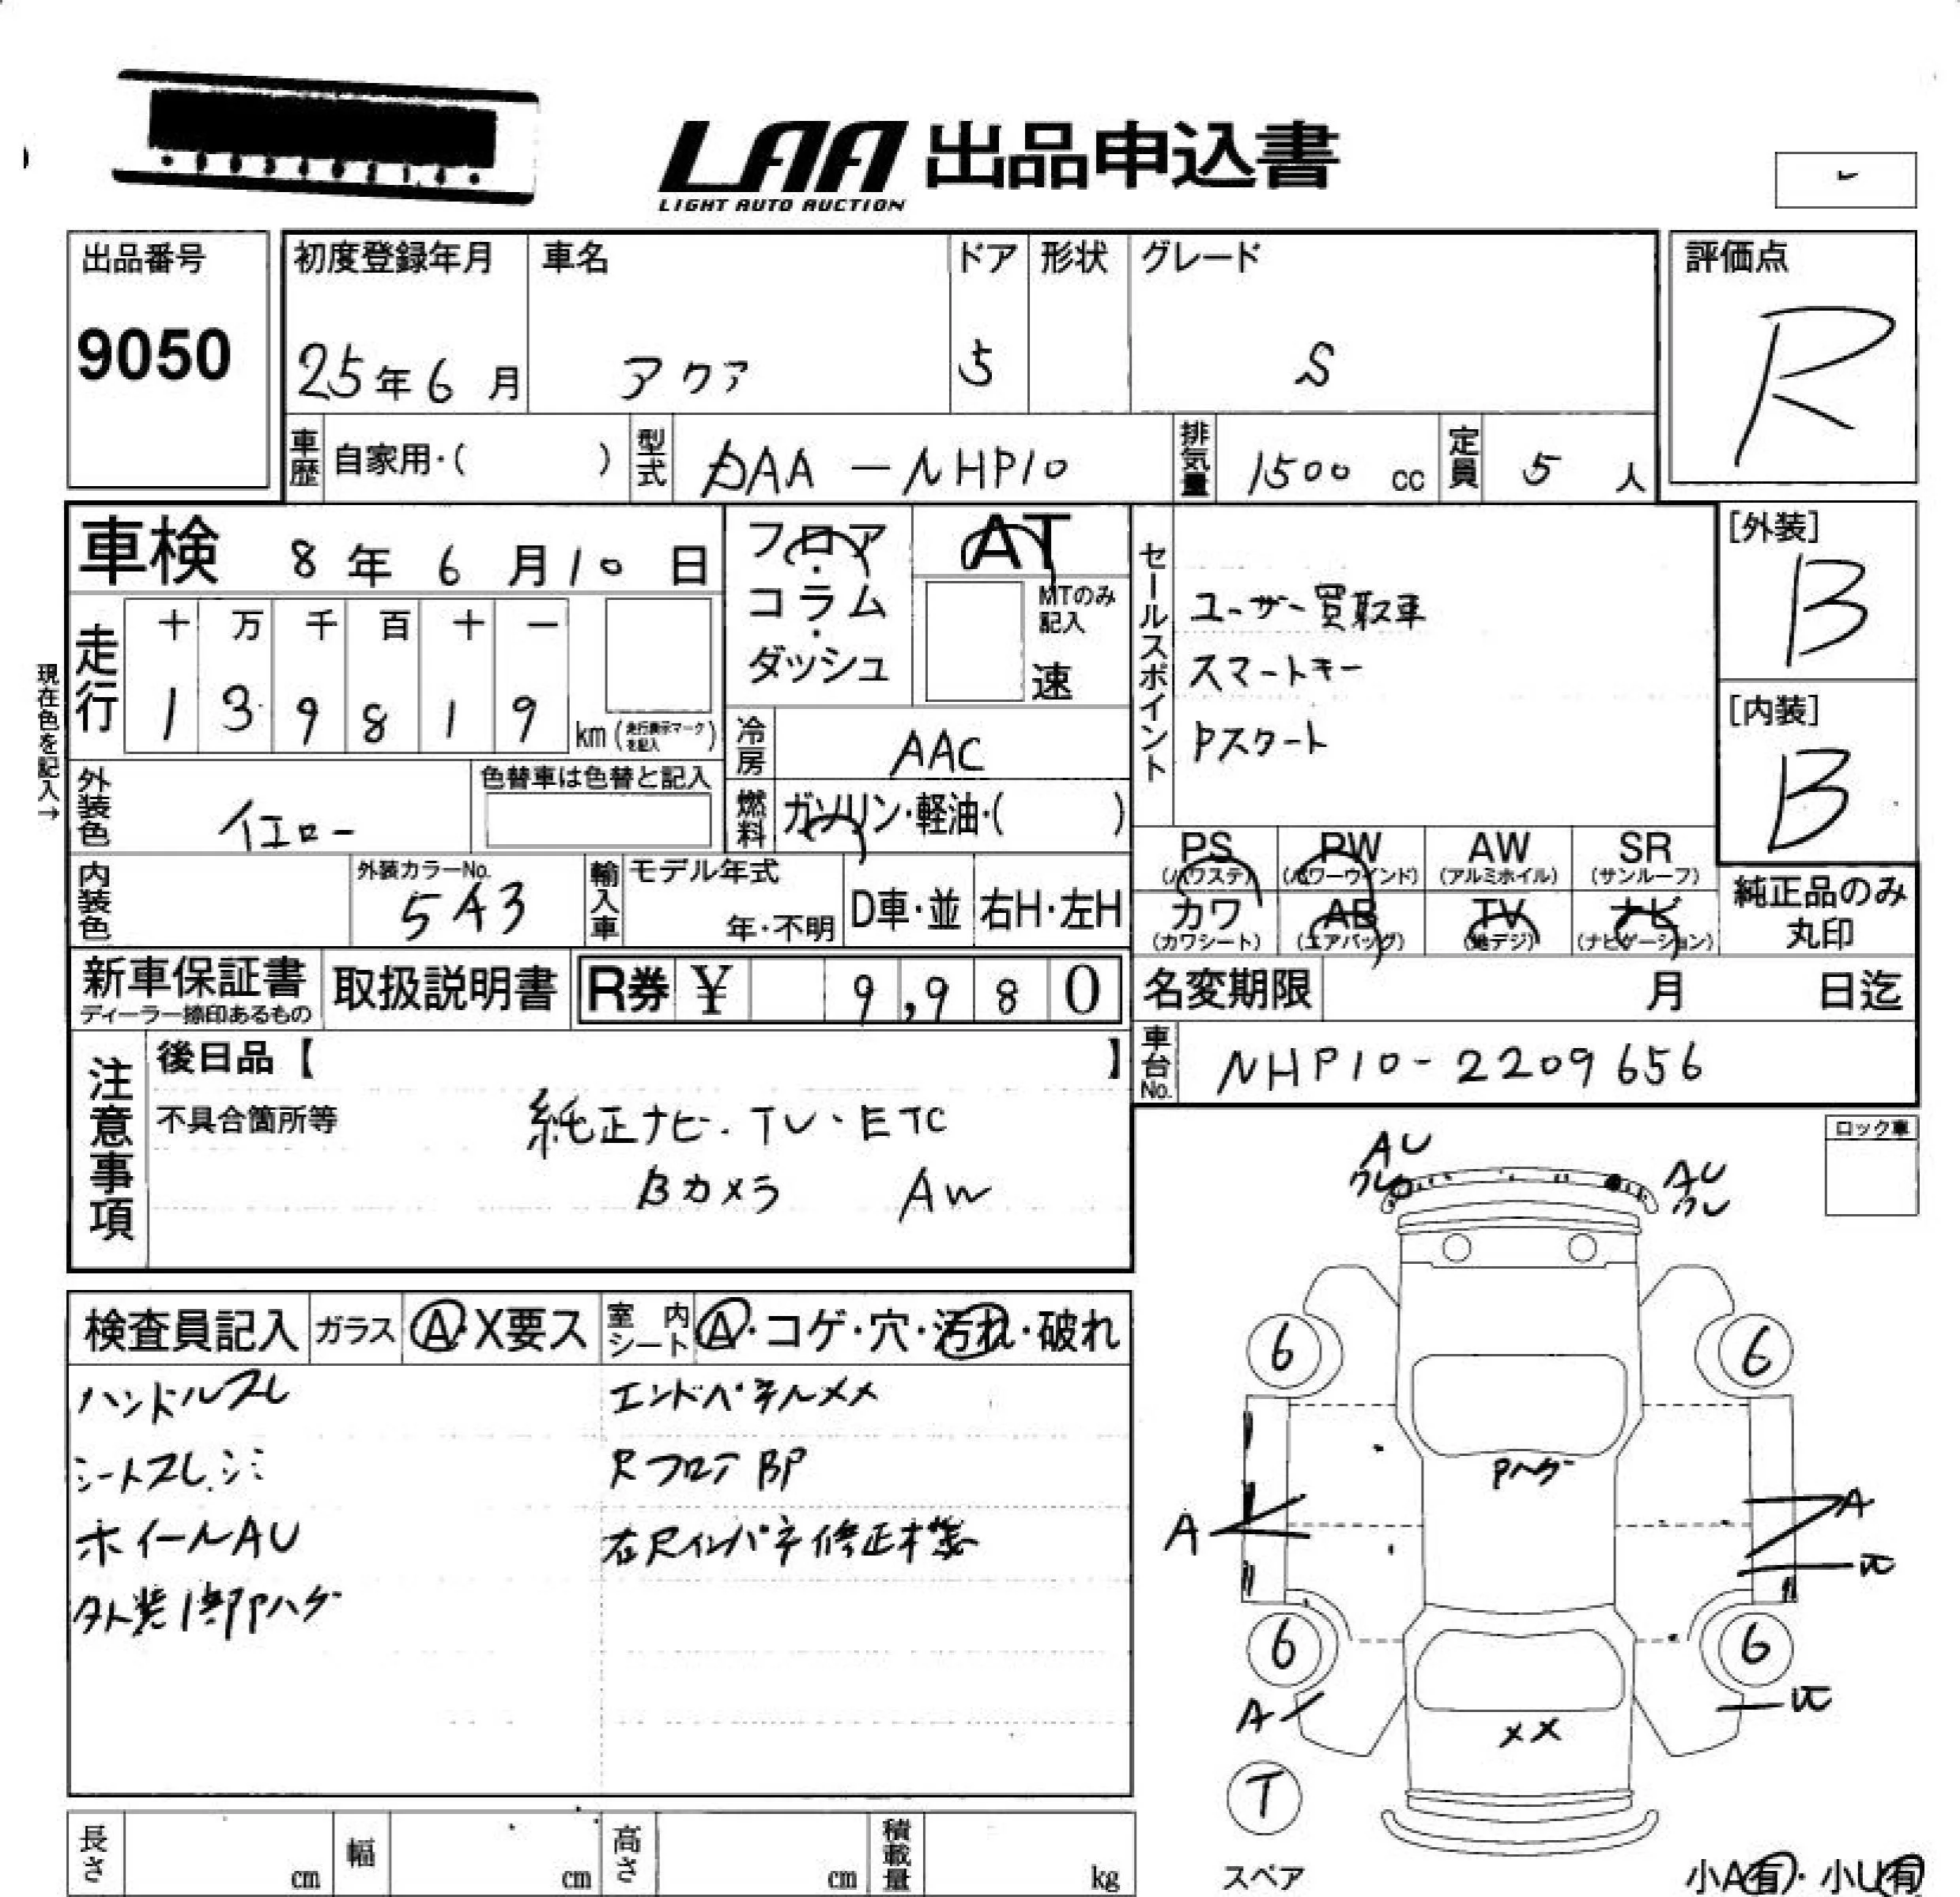 LAA 出品申込書
LIGHT AUTO AUCTION
出品番号
9050
初度登録年月
25年6月
車名
アクア
ドア
5
形状
グレード
S
評価点
R
車歴 自家用・( )
型式 DAA-NHP10
排気量 1500 cc
定員 5 人
車検 8年6月10日
フロア・コラム・ダッシュ
AT
MTのみ記入
速
セールスポイント
ユーザー買取車
スマートキー
Pスタート
[外装]
B
[内装]
B
現在色を記入→
走行
十 万 千 百 十 一
1 3 9 8 1 9 km (走行表示マークを記入)
冷房 AAC
燃料 ガソリン・軽油・( )
外装色 イエロー
色替車は色替と記入
内装色
外装カラーNo.
5A3
輸入車
モデル年式
年・不明
D車・並
右H・左H
PS (パワステ)
PW (パワーウインド)
AW (アルミホイル)
SR (サンルーフ)
カワ (カワシート)
AB (エアバッグ)
TV (地デジ)
ナビ (ナビゲーション)
純正品のみ丸印
新車保証書
ディーラー捺印あるもの
取扱説明書
R券 ¥ 9,980
名変期限 月 日迄
車台No. NHP10-2209656
注意事項
後日品【 】
不具合箇所等
純正ナビ・TV・ETC
Bカメラ AW
ロック車
検査員記入
ガラス A・X要ス
室内シート A・コゲ・穴・汚れ・破れ
ハンドルスレ
シートスレ.シミ
ホイールAU
外装1部Pハゲ
エンドパネルXX
RフロアBP
右Rインパネ修正
AU
AU
6
6
Pハゲ
A
A
6
6
A
XX
T
スペア
小A有・小U有
長さ cm
幅 cm
高さ cm
積載量 kg